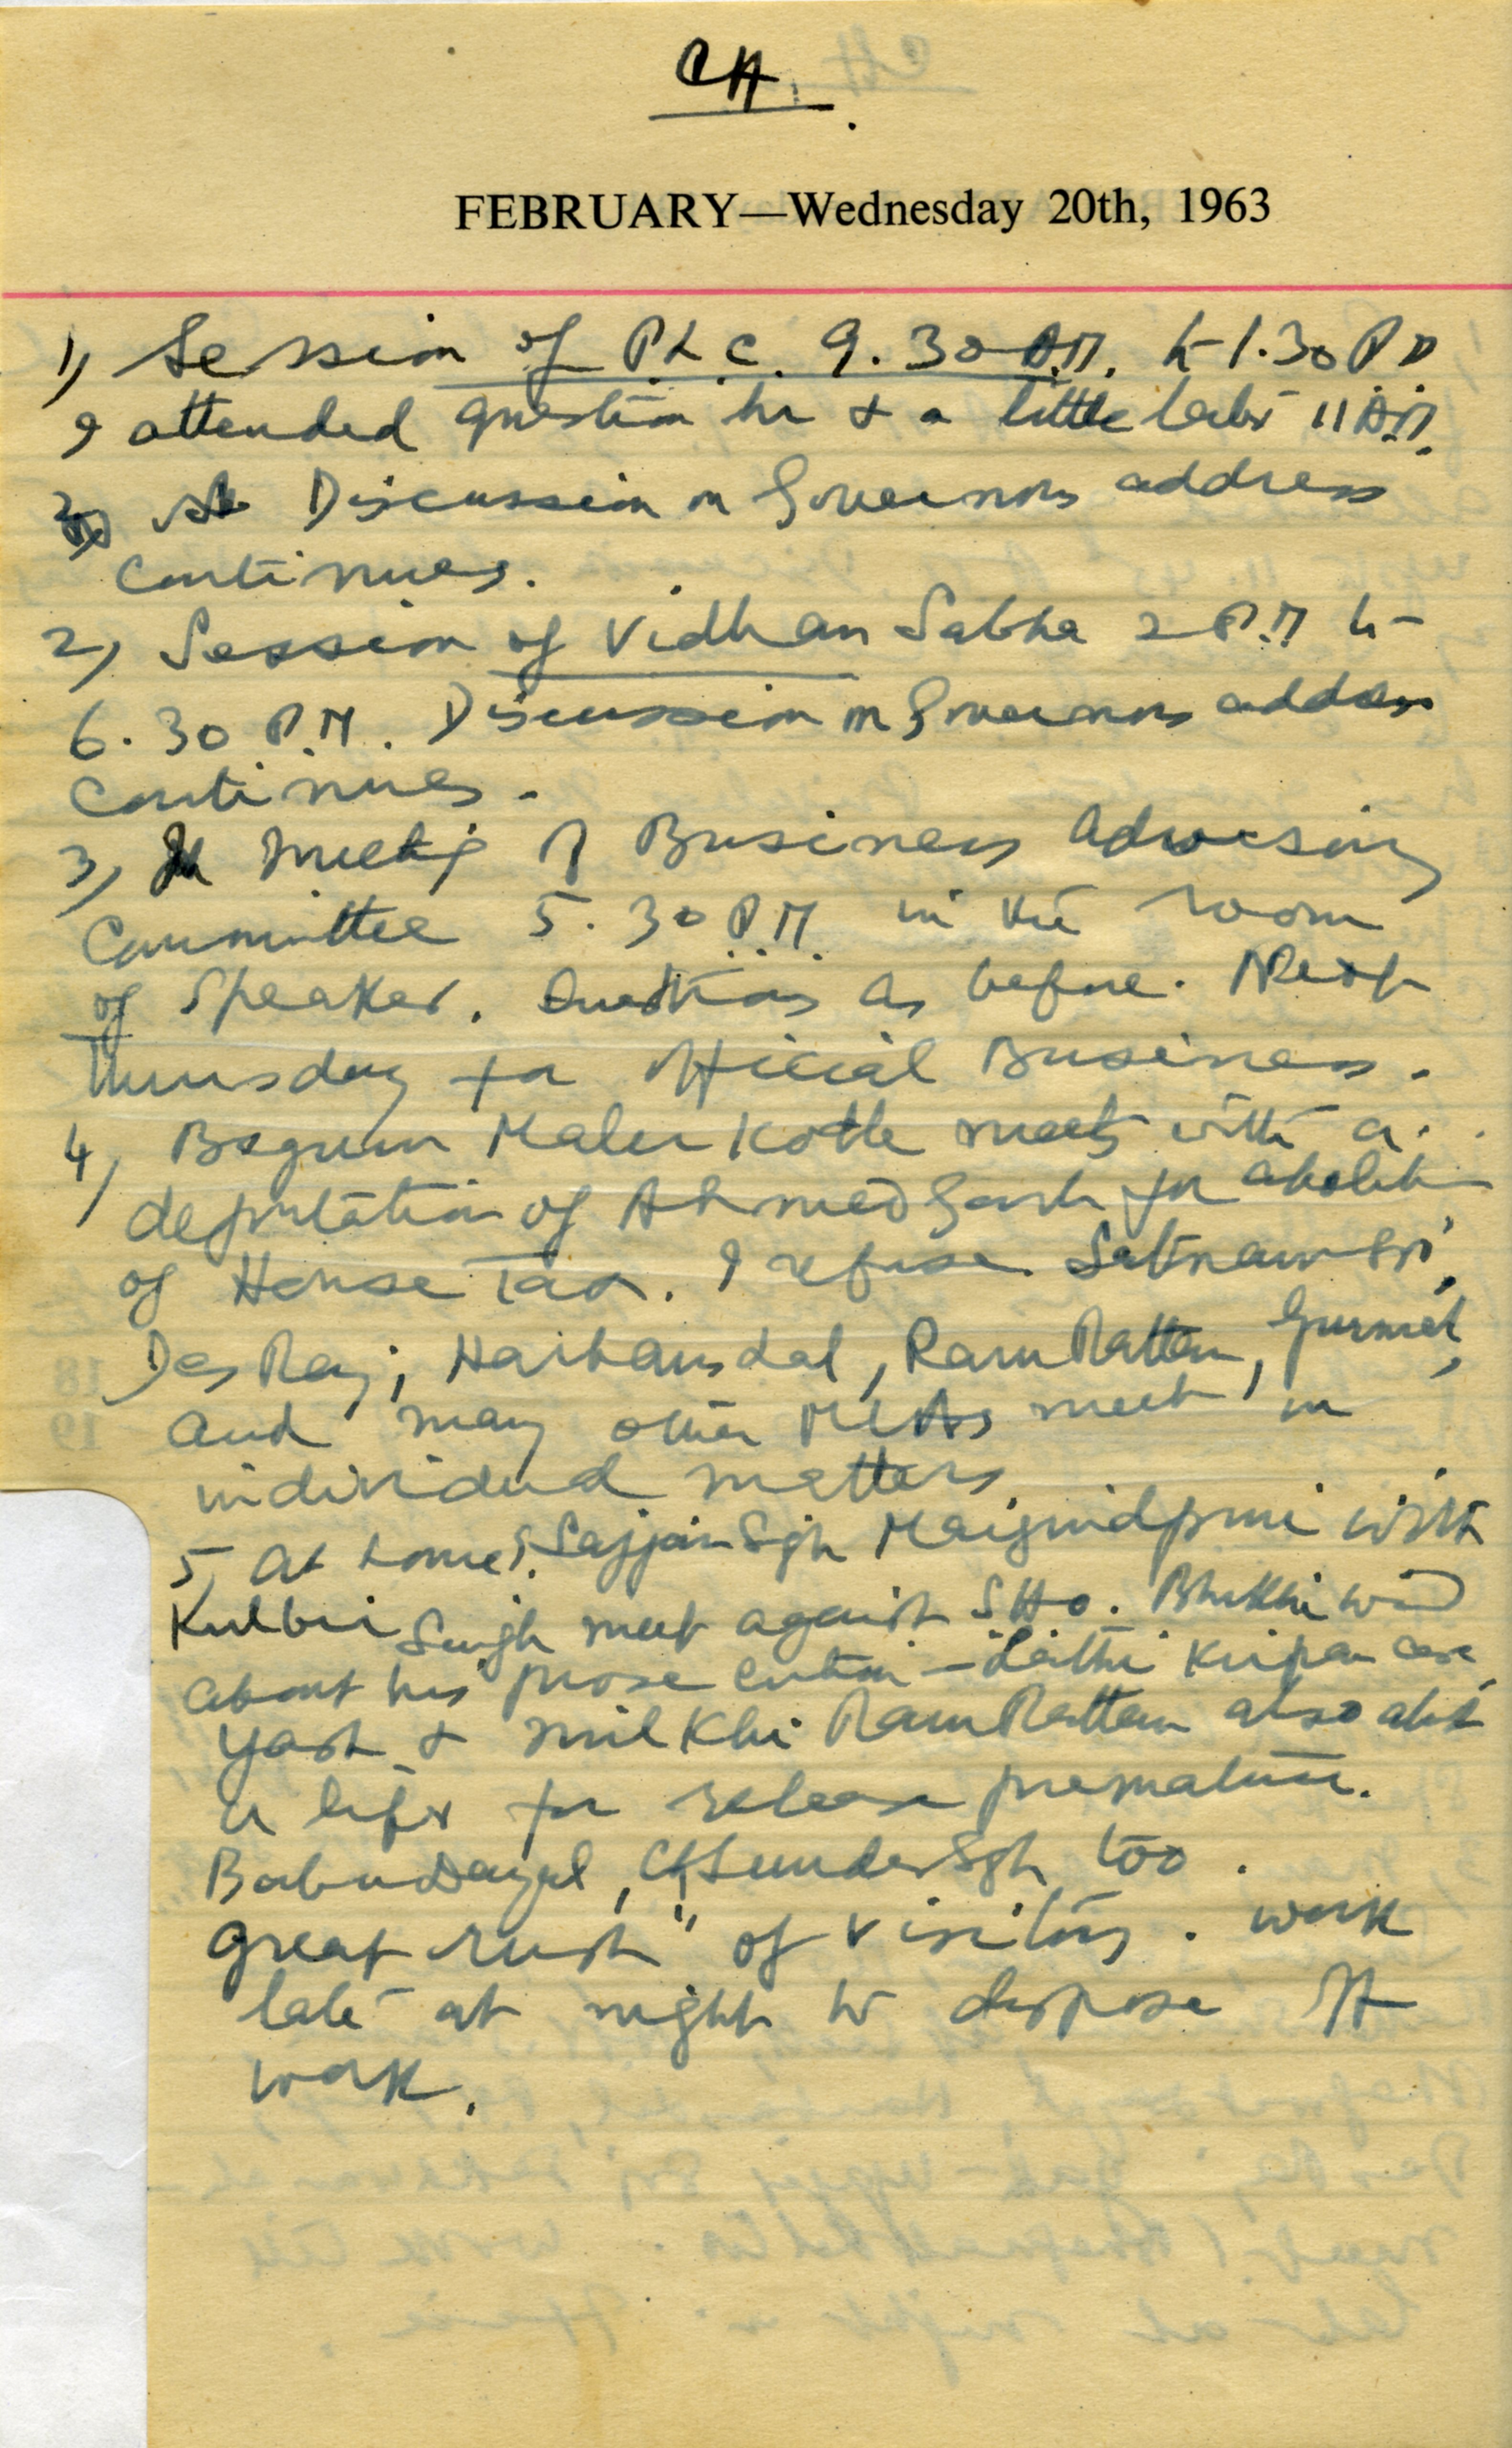 CH.
FEBRUARY—Wednesday 20th, 1963
1) Session of P.L.C. 9.30 A.M. to 1.30 PM
I attended question hr & a little later 11 A.M.
Discussion on Governors address
continues.
2) Session of Vidhan Sabha 2 P.M to
6.30 P.M. Discussion on Governors address
continues.
3) Meeting of Business Advisory
Committee 5.30 P.M. in the room
of Speaker. Questions as before. Next
Thursday for official Business.
4) Begum Maler Kotla meets with a
deputation of Ahmedgarh for abolition
of House Tax. I refuse. Satnam
Des Raj, Harbans Lal, Ram Rattan, Gurmel,
and many other MLAs meet in
individual matters.
5, At home S. Sajjan Sgh Margindpuri with
Kulbir Singh meet against SHO. Bhikhiwind
about his prosecution - Lathi Kirpan case
Yash & Milkhi Ram Rattan also abt
a lifer for release premature.
Babu Dayal, Ch Sunder Sgh too.
great rush of visitors. work
late at night to dispose off
work.